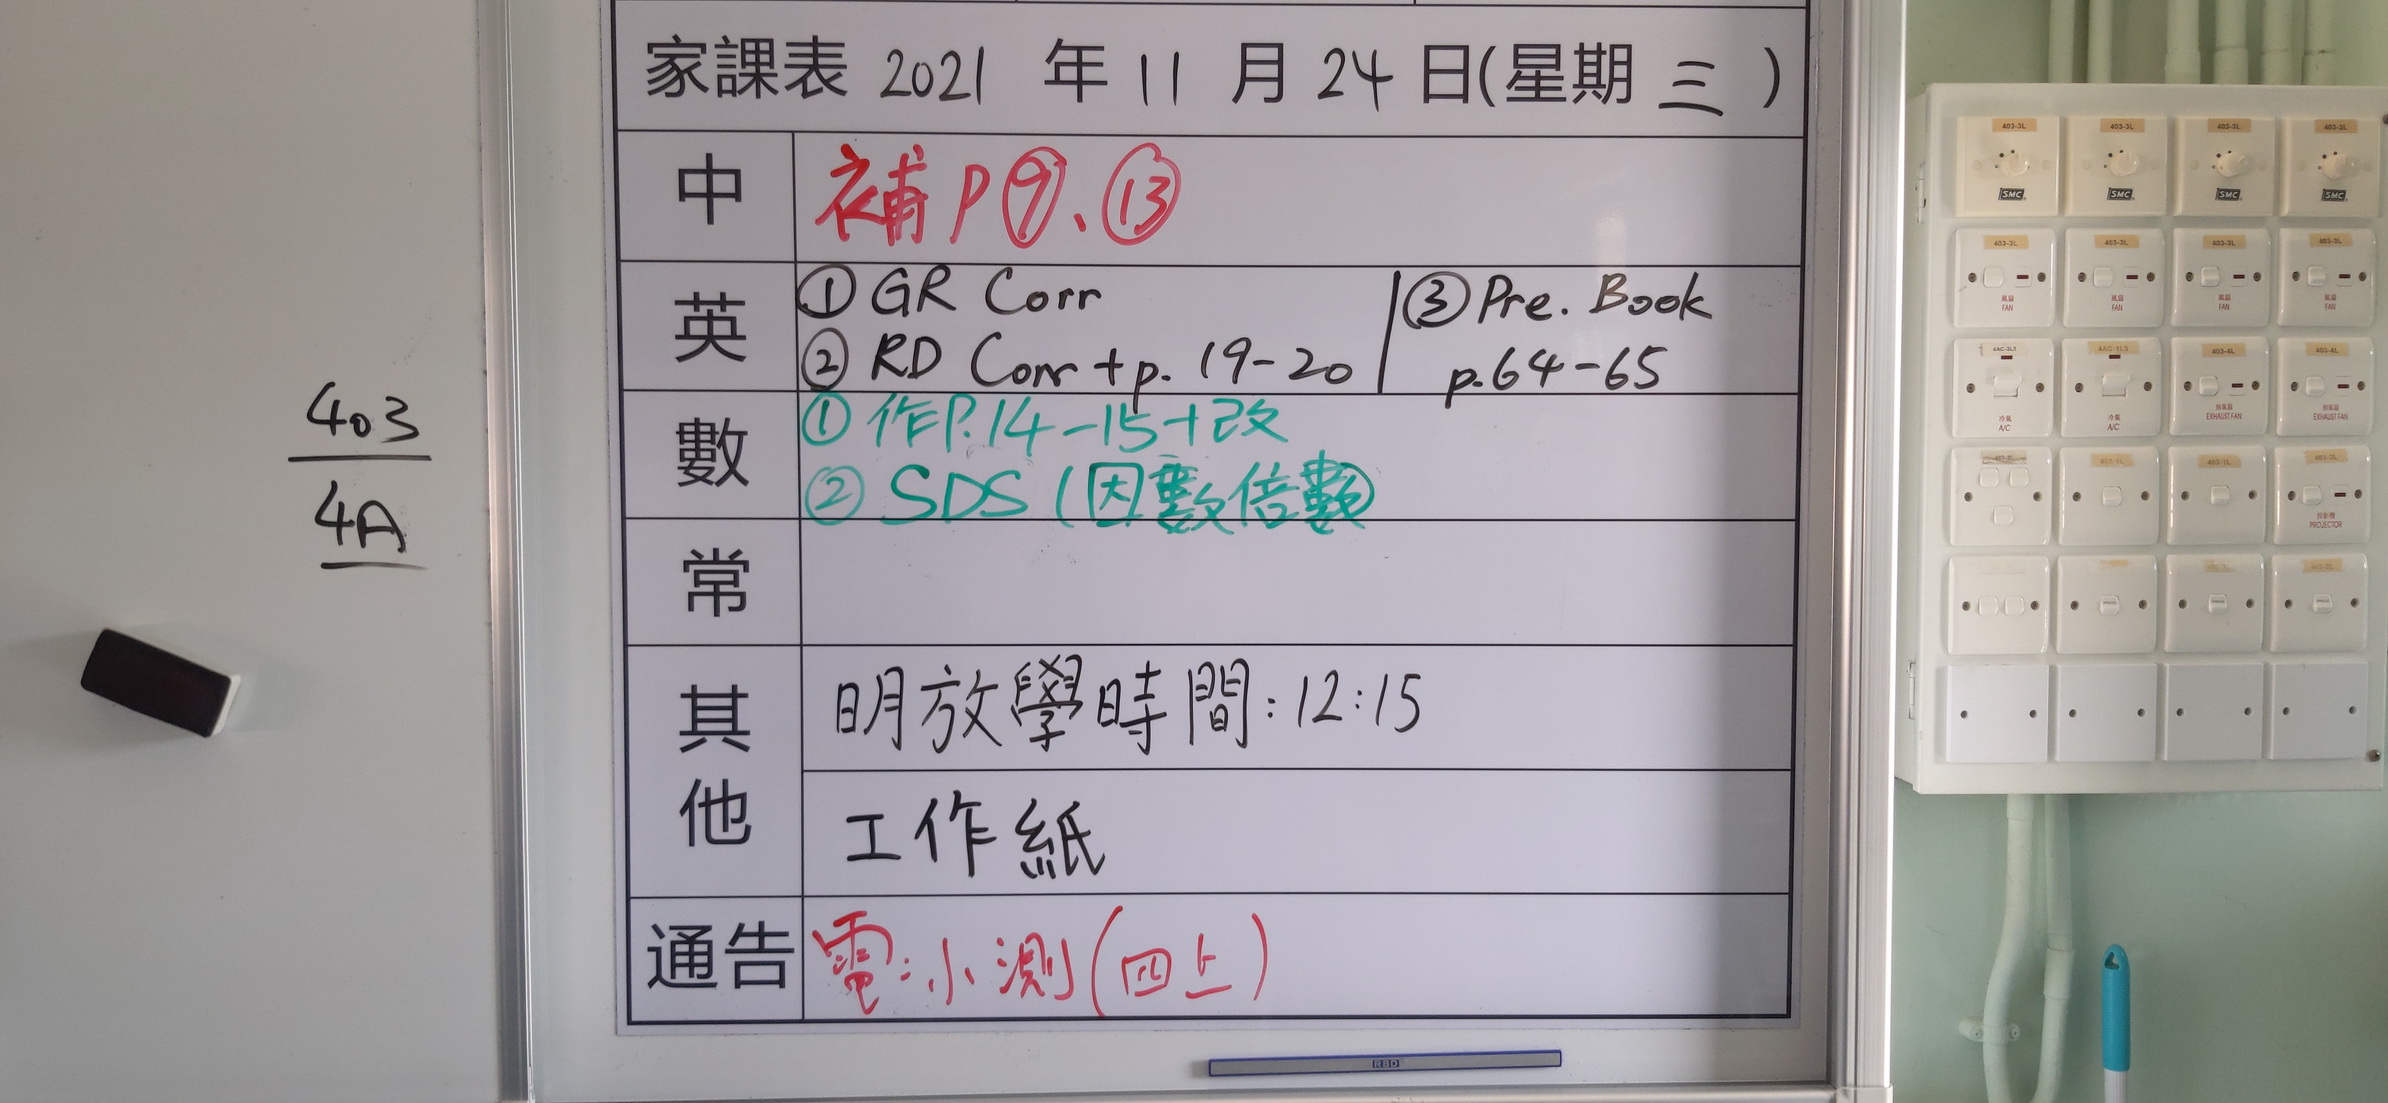 家課表 2021 年 11 月 24 日(星期 三 )
中 補 P⑨、⑬
英 ① GR Corr
② RD Corr + p. 19-20
③ Pre. Book
p.64-65
數 ① 作P.14-15+改
② SDS (因數倍數)
常
其他 明放學時間:12:15
工作紙
通告 電:小測(四上)
403
4A
RBD
403-3L 403-3L 403-3L 403-3L
SMC SMC SMC SMC
403-3L 403-3L 403-3L 403-3L
風扇 風扇 風扇 風扇
FAN FAN FAN FAN
403-4L 403-4L
冷氣 冷氣 抽氣扇 抽氣扇
A/C A/C EXHAUST FAN EXHAUST FAN
投影機
PROJECTOR